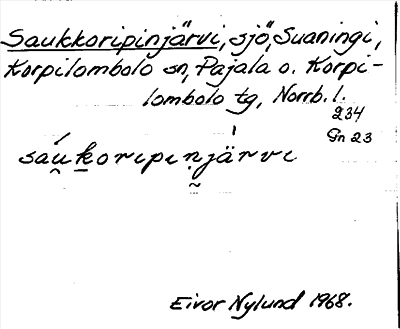 Saukkoripinjärvi, sjö, Suaningi,
Korpilombolo sn, Pajala o. Korpi-
lombolo tg, Norrb. l.
234
Gn 23
sáu̯k̲oripin̰jä́rvi
Eivor Nylund 1968.